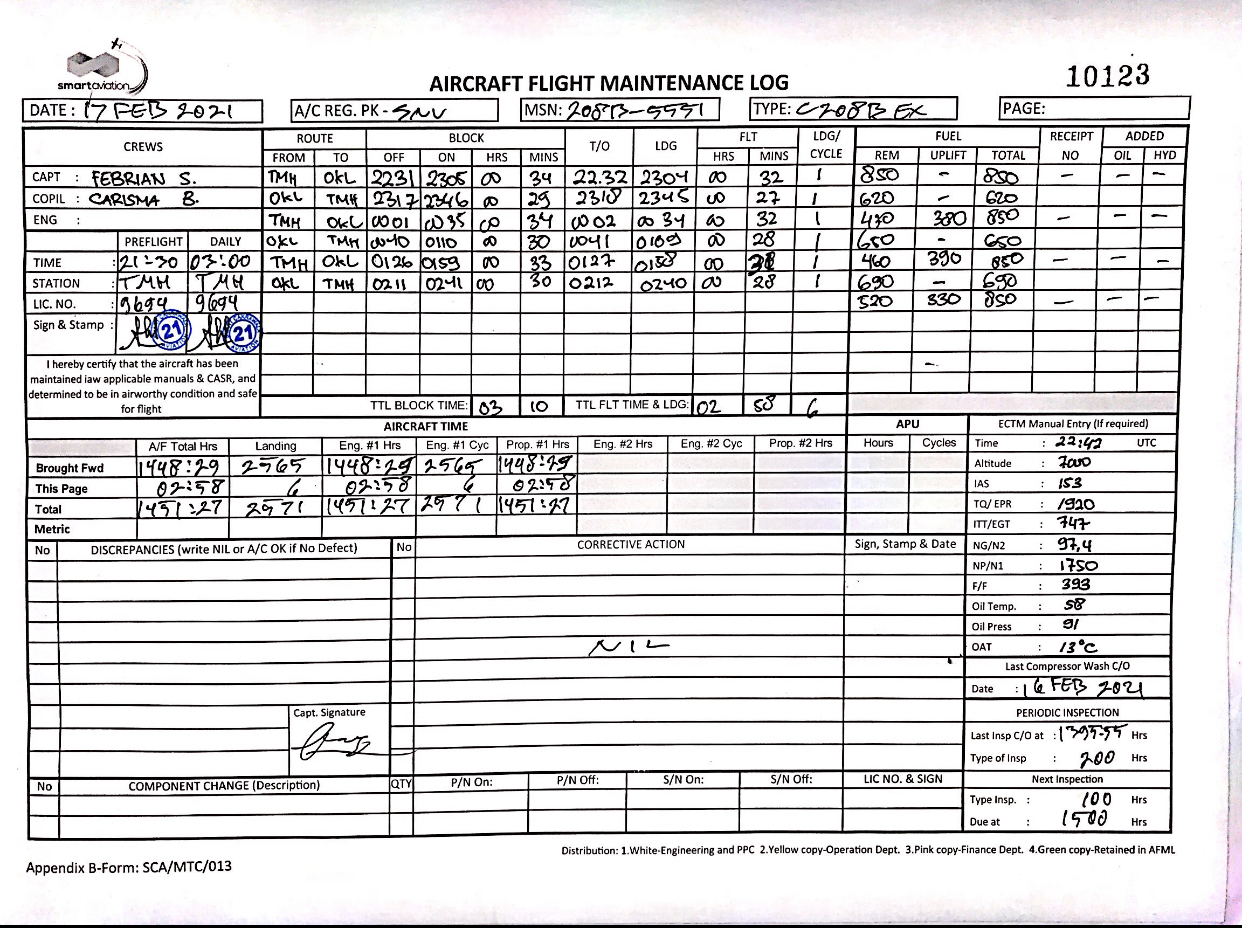 smartaviation
AIRCRAFT FLIGHT MAINTENANCE LOG
10123
DATE : 17 FEB 2021 A/C REG. PK - SNV MSN: 208B-5551 TYPE: C208B EX PAGE:
CREWS ROUTE BLOCK T/O LDG FLT LDG/ CYCLE FUEL RECEIPT NO ADDED
FROM TO OFF ON HRS MINS HRS MINS REM UPLIFT TOTAL OIL HYD
CAPT : FEBRIAN S. TMH OKL 2231 2305 00 34 22.32 2304 00 32 1 850 - 850 - - -
COPIL : CARISMA B. OKL TMH 2317 2346 00 29 2318 2345 00 27 1 620 - 620
ENG : TMH OKL 0001 0035 00 34 0002 0034 00 32 1 470 380 850 - - -
PREFLIGHT DAILY OKL TMH 0040 0110 00 30 0041 0109 00 28 1 650 - 650
TIME : 21:30 03:00 TMH OKL 0126 0159 00 33 0127 0158 00 31 1 460 390 850 - - -
STATION : TMH TMH OKL TMH 0211 0241 00 30 0212 0240 00 28 1 690 - 690
LIC. NO. : 9694 9694 520 330 850 - - -
Sign & Stamp : 21 21
I hereby certify that the aircraft has been
maintained iaw applicable manuals & CASR, and
determined to be in airworthy condition and safe
for flight
TTL BLOCK TIME: 03 10 TTL FLT TIME & LDG: 02 58 6
AIRCRAFT TIME APU ECTM Manual Entry (If required)
A/F Total Hrs Landing Eng. #1 Hrs Eng. #1 Cyc Prop. #1 Hrs Eng. #2 Hrs Eng. #2 Cyc Prop. #2 Hrs Hours Cycles
Time : 22:42 UTC
Brought Fwd 1448:29 2565 1448:29 2565 1448:29
Altitude : 7000
This Page 02:58 6 02:58 6 02:58
IAS : 153
Total 1451:27 2571 1451:27 2571 1451:27
TQ/ EPR : 1920
Metric
ITT/EGT : 747
No DISCREPANCIES (write NIL or A/C OK if No Defect) No CORRECTIVE ACTION Sign, Stamp & Date
NG/N2 : 97,4
NP/N1 : 1750
F/F : 393
Oil Temp. : 58
Oil Press : 91
NIL
OAT : 13°C
Last Compressor Wash C/O
Date : 16 FEB 2021
Capt. Signature
PERIODIC INSPECTION
Last Insp C/O at : 1395:55 Hrs
Type of Insp : 200 Hrs
No COMPONENT CHANGE (Description) QTY P/N On: P/N Off: S/N On: S/N Off: LIC NO. & SIGN
Next Inspection
Type Insp. : 100 Hrs
Due at : 1500 Hrs
Distribution: 1.White-Engineering and PPC 2.Yellow copy-Operation Dept. 3.Pink copy-Finance Dept. 4.Green copy-Retained in AFML
Appendix B-Form: SCA/MTC/013